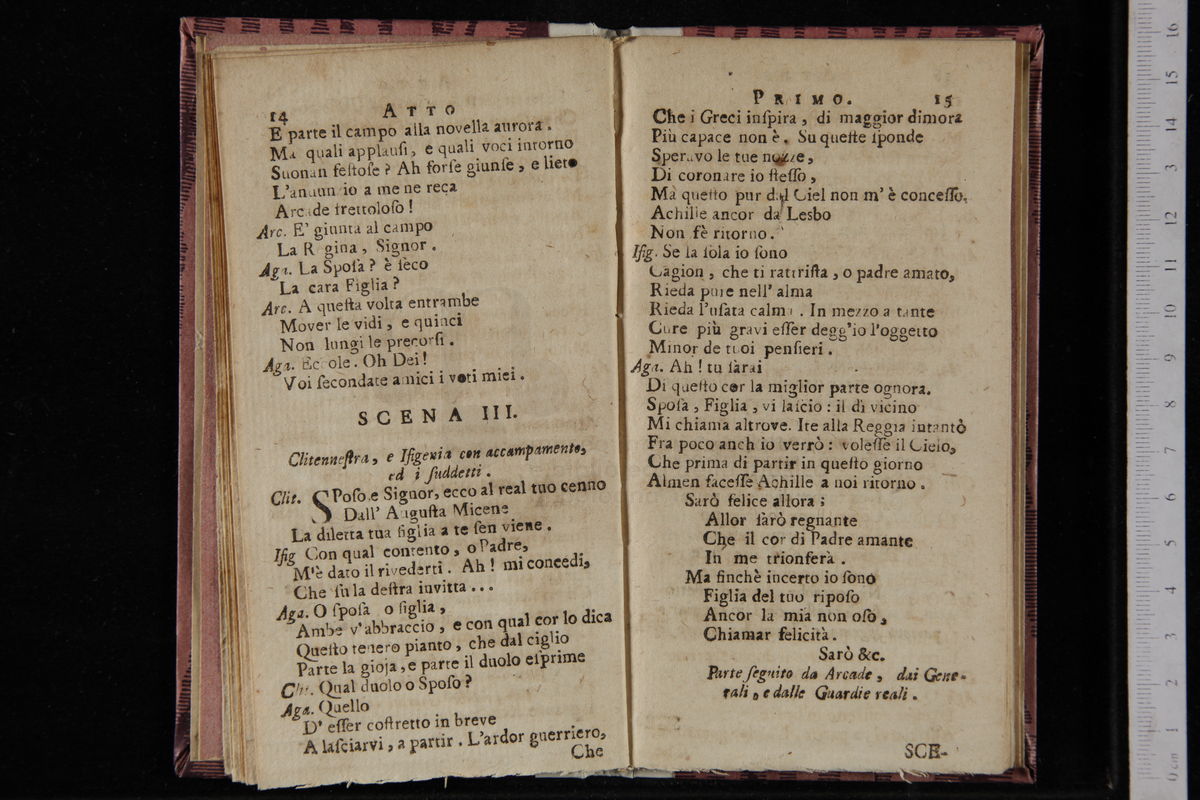 14 ATTO
E parte il campo alla novella aurora.
Ma quali applauſi, e quali voci intorno
Suonan feſtoſe? Ah forſe giunſe, e lieto
L'annunzio a me ne reca
Arcade frettoloſo!
Arc. E' giunta al campo
La Regina, Signor.
Aga. La Spoſa? è ſeco
La cara Figlia?
Arc. A queſta volta entrambe
Mover le vidi, e quinci
Non lungi le precorſi.
Aga. Eccole. Oh Dei!
Voi ſecondate amici i voti miei.
SCENA III.
Clitenneſtra, e Ifigenia con accampamento,
ed i ſuddetti.
Clit. SPoſo e Signor, ecco al real tuo cenno
Dall' Auguſta Micene
La diletta tua figlia a te ſen viene.
Ifig Con qual contento, o Padre,
M'è dato il rivederti. Ah! mi concedi,
Che ſu la deſtra invitta...
Aga. O ſpoſa o figlia,
Ambe v'abbraccio, e con qual cor lo dica
Queſto tenero pianto, che dal ciglio
Parte la gioja, e parte il duolo eſprime
Clit. Qual duolo o Spoſo?
Aga. Quello
D' eſſer coſtretto in breve
A laſciarvi, a partir. L'ardor guerriero,
Che
PRIMO. 15
Che i Greci inſpira, di maggior dimora
Più capace non è. Su queſte ſponde
Speravo le tue nozze,
Di coronare io ſteſſo,
Ma queſto pur dal Ciel non m'è conceſſo.
Achille ancor da Lesbo
Non fè ritorno.
Ifig. Se la ſola io ſono
Cagion, che ti rattriſta, o padre amato,
Rieda pure nell' alma
Rieda l'uſata calma. In mezzo a tante
Cure più gravi eſſer degg'io l'oggetto
Minor de tuoi penſieri.
Aga. Ah! tu ſarai
Di queſto cor la miglior parte ognora.
Spoſa, Figlia, vi laſcio: il dì vicino
Mi chiama altrove. Ite alla Reggia intantò
Fra poco anch io verrò: voleſſe il Cielo,
Che prima di partir in queſto giorno
Almen faceſſe Achille a noi ritorno.
Sarò felice allora;
Allor ſarò regnante
Che il cor di Padre amante
In me trionferà.
Ma finchè incerto io ſono
Figlia del tuo ripoſo
Ancor la mia non oſo,
Chiamar felicità.
Sarò &c.
Parte ſeguito da Arcade, dai Gene-
rali, e dalle Guardie reali.
SCE-
0 cm 1 2 3 4 5 6 7 8 9 10 11 12 13 14 15 16